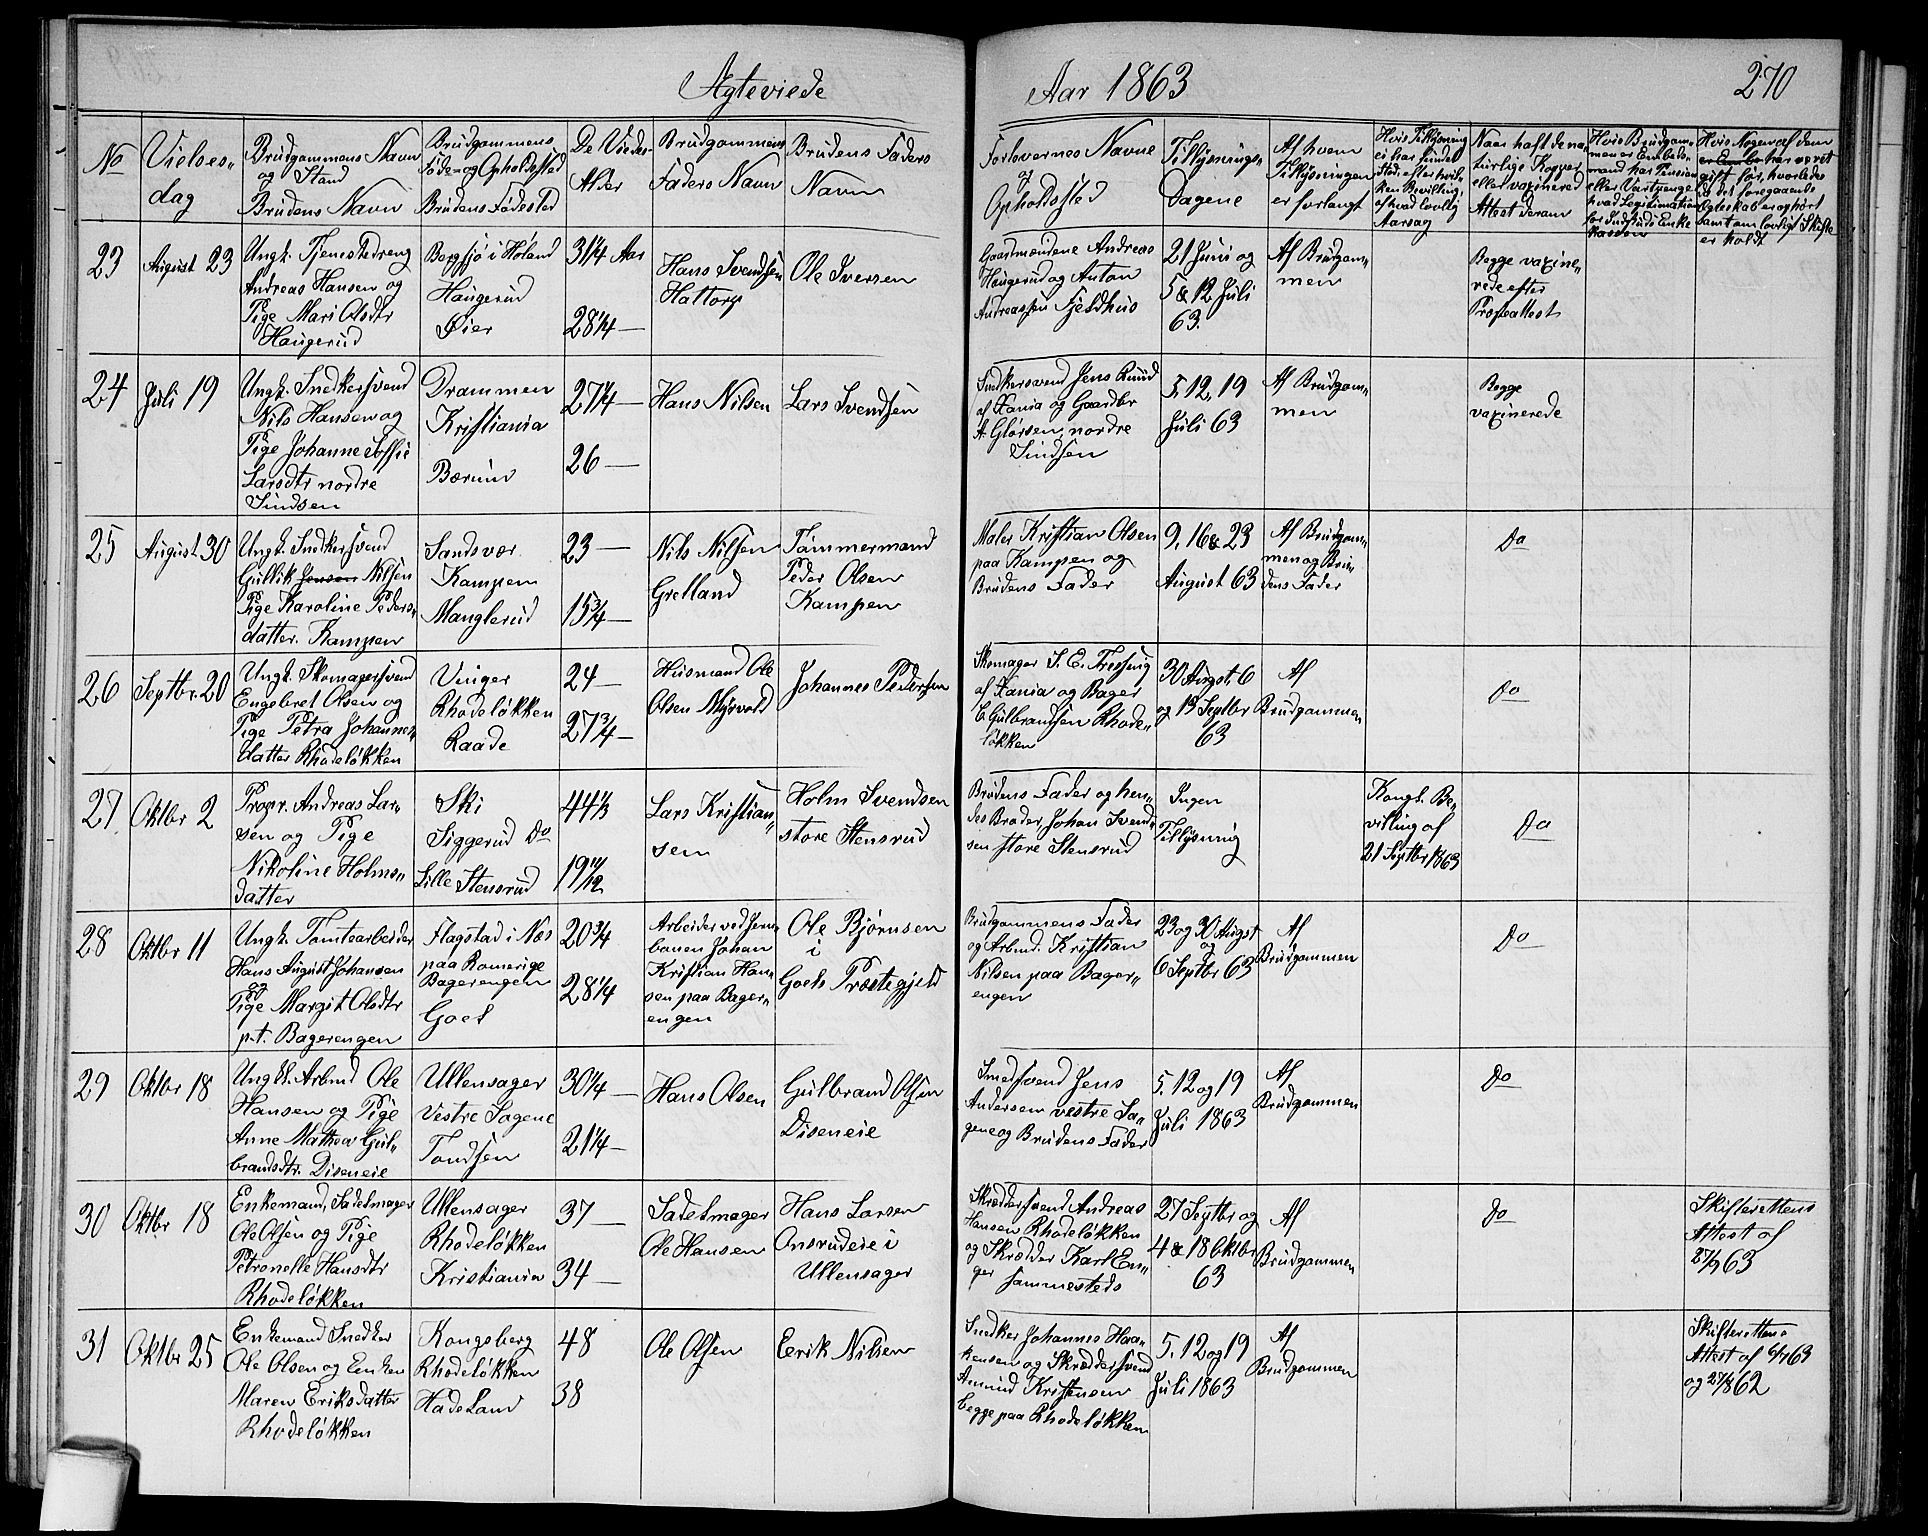 Ægteviede
Aar 1863
270
No
Vielses-
dag
Brudgommens Navn
og Stand
Brudens Navn
Brudgommens
Føde- og Opholdssted
Brudens Fødested
De Viedes
Alder
Brudgommens
Faders Navn
Brudens Faders
Navn
Forlovernes Navne
og
Opholdssted
Tillysnings-
Dagene
Af hvem
Tillysningen
er forlangt
Hvis Tillysning
ei har fundet
Sted, efter hvil-
ken Bevilling,
af hvad lovlig
Aarsag
Naar haft de na-
turlige Kopper
eller vaxinered
Attest derom
Hvis Brudgom-
men er Embeds-
mand har Pension
eller Vartpenge
hvad Legitimation
for Indskud i Enke-
kassen
Hvis Nogen af dem
har været
gift før, hvorledes
da det foregaaende
Ægteskab er ophørt
samt om lovligt Skifte
er holdt
23
August 23
Ungk. Tjenestedreng
Andreas Hansen og
Pige Mari Olsdtr
Haugerud
Bergsjø i Høland
Haugerud
Øier
31 1/4 Aar
28 1/4 —
Hans Svendsen
Hattorp
Ole Iversen
Gaardmændene Andreas
Haugerud og Anton
Andreassen Fjeldhus
21 Juni og
5 & 12 Juli
63.
Af Brudgom-
men
Begge vaxine-
rede efter
Præsteattest
24
Juli 19
Ungk. Snedkersvend
Nils Hansen og
Pige Johanne Soffie
Larsdtr nordre
Sindsen
Drammen
Kristiania
Bærum
27 1/4 —
26 —
Hans Nilsen
Lars Svendsen
Snedkersvend Jens Ruud
af Xania og Gaardbr
A. Glørsen, nordre
Sindsen
5, 12, 19
Juli 63
Af Brudgom-
men
Begge
vaxinerede
25
August 30
Ungk. Snedkersvend
Gullik Jensen Nilsen
Pige Karoline Peders-
datter. Kampen
Sandsvær
Kampen
Manglerud
23 —
15 3/4 —
Nils Nilsen
Grelland
Tømmermand
Peder Olsen
Kampen
Maler Kristian Olsen
paa Kampen og
Brudens Fader
9, 16 & 23
August 63
Af Brudgom-
men og Bru-
dens Fader
Do
26
Septbr. 20
Ungk. Skomagersvend
Engebret Olsen og
Pige Petra Johannes-
datter Rhodeløkken
Vinger
Rhodeløkken
Raade
24 —
27 3/4 —
Husmand Ole
Olsen Myrvold
Johannes Pedersen
Skomager S. E. Tressing
af Xania og Bager
E Gulbrandsen Rhode-
løkken
30 Augst, 6
og 13 Septbr
63
Af
Brudgommen
Do
27
Oktbr 2
Propr. Andreas Lar-
sen og Pige
Nikoline Holms-
datter
Ski
Siggerud Do
Lille Stensrud
44 1/3
19 11/12
Lars Kristian-
sen
Holm Svendsen
store Stensrud
Brudens Fader og hen-
des Broder, Johan Svend-
sen store Stensrud
Ingen
Tillysning
Kongl. Be-
villing af
21 Septbr 1863
Do
28
Oktbr 11
Ungk. Tomtearbeider
Hans August Johansen
og
Pige Margit Olsdtr
p.t. Bagerengen
Flagstad i Næs
paa Romerige
Bagerengen
Goel
20 3/4
28 1/4
Arbeider ved Jern-
banen Johan
Kristian Han-
sen paa Bager-
engen
Ole Bjørnsen
i
Goels Præstegjeld
Brudgommens Fader
og Arbmd. Kristian
Nilsen paa Bager-
engen
23 og 30 Augst
og
6 Septbr 63
Af
Brudgommen
Do
29
Oktbr 18
Ungk. Arbmd Ole
Hansen og Pige
Anne Mathea Gul-
brandsdtr. Diseneie
Ullensager
Vestre Sagene
Tondsen
30 1/4 —
21 1/4 —
Hans Olsen
Gulbrand Olsen
Diseneie
Smedsvend Jens
Andersen vestre Sa-
gene og Brudens Fader
5, 12 og 19
Juli 1863
Af
Brudgommen
Do
30
Oktbr 18
Enkemand, Sadelmager
Ole Olsen og Pige
Petronelle Hansdtr
Rhodeløkken
Ullensager
Rhodeløkken
Kristiania
37 —
34 —
Sadelmager
Ole Hansen
Hans Larsen
Onsrudeie i
Ullensager
Skræddersvend Andreas
Hansen Rhodeløkken
og Skrædder Karl En-
ger sammesteds
27 Septbr og
4 & 18 Oktbr
63
Af
Brudgommen
Do
Skifterettens
Attest af
27/7 63
31
Oktbr 25
Enkemand Snedker
Ole Olsen og Enken
Maren Eriksdatter
Rhodeløkken
Kongsberg
Rhodeløkken
Hadeland
48
38
Ole Olsen
Erik Nilsen
Snedker Johannes Haa-
kensen og Skræddersvend
Amund Kristensen
begge paa Rhodeløkken
5, 12 og 19
Juli 1863
Af
Brudgommen
Skifterettens
Attest af 6/7 63
og 27/8 62